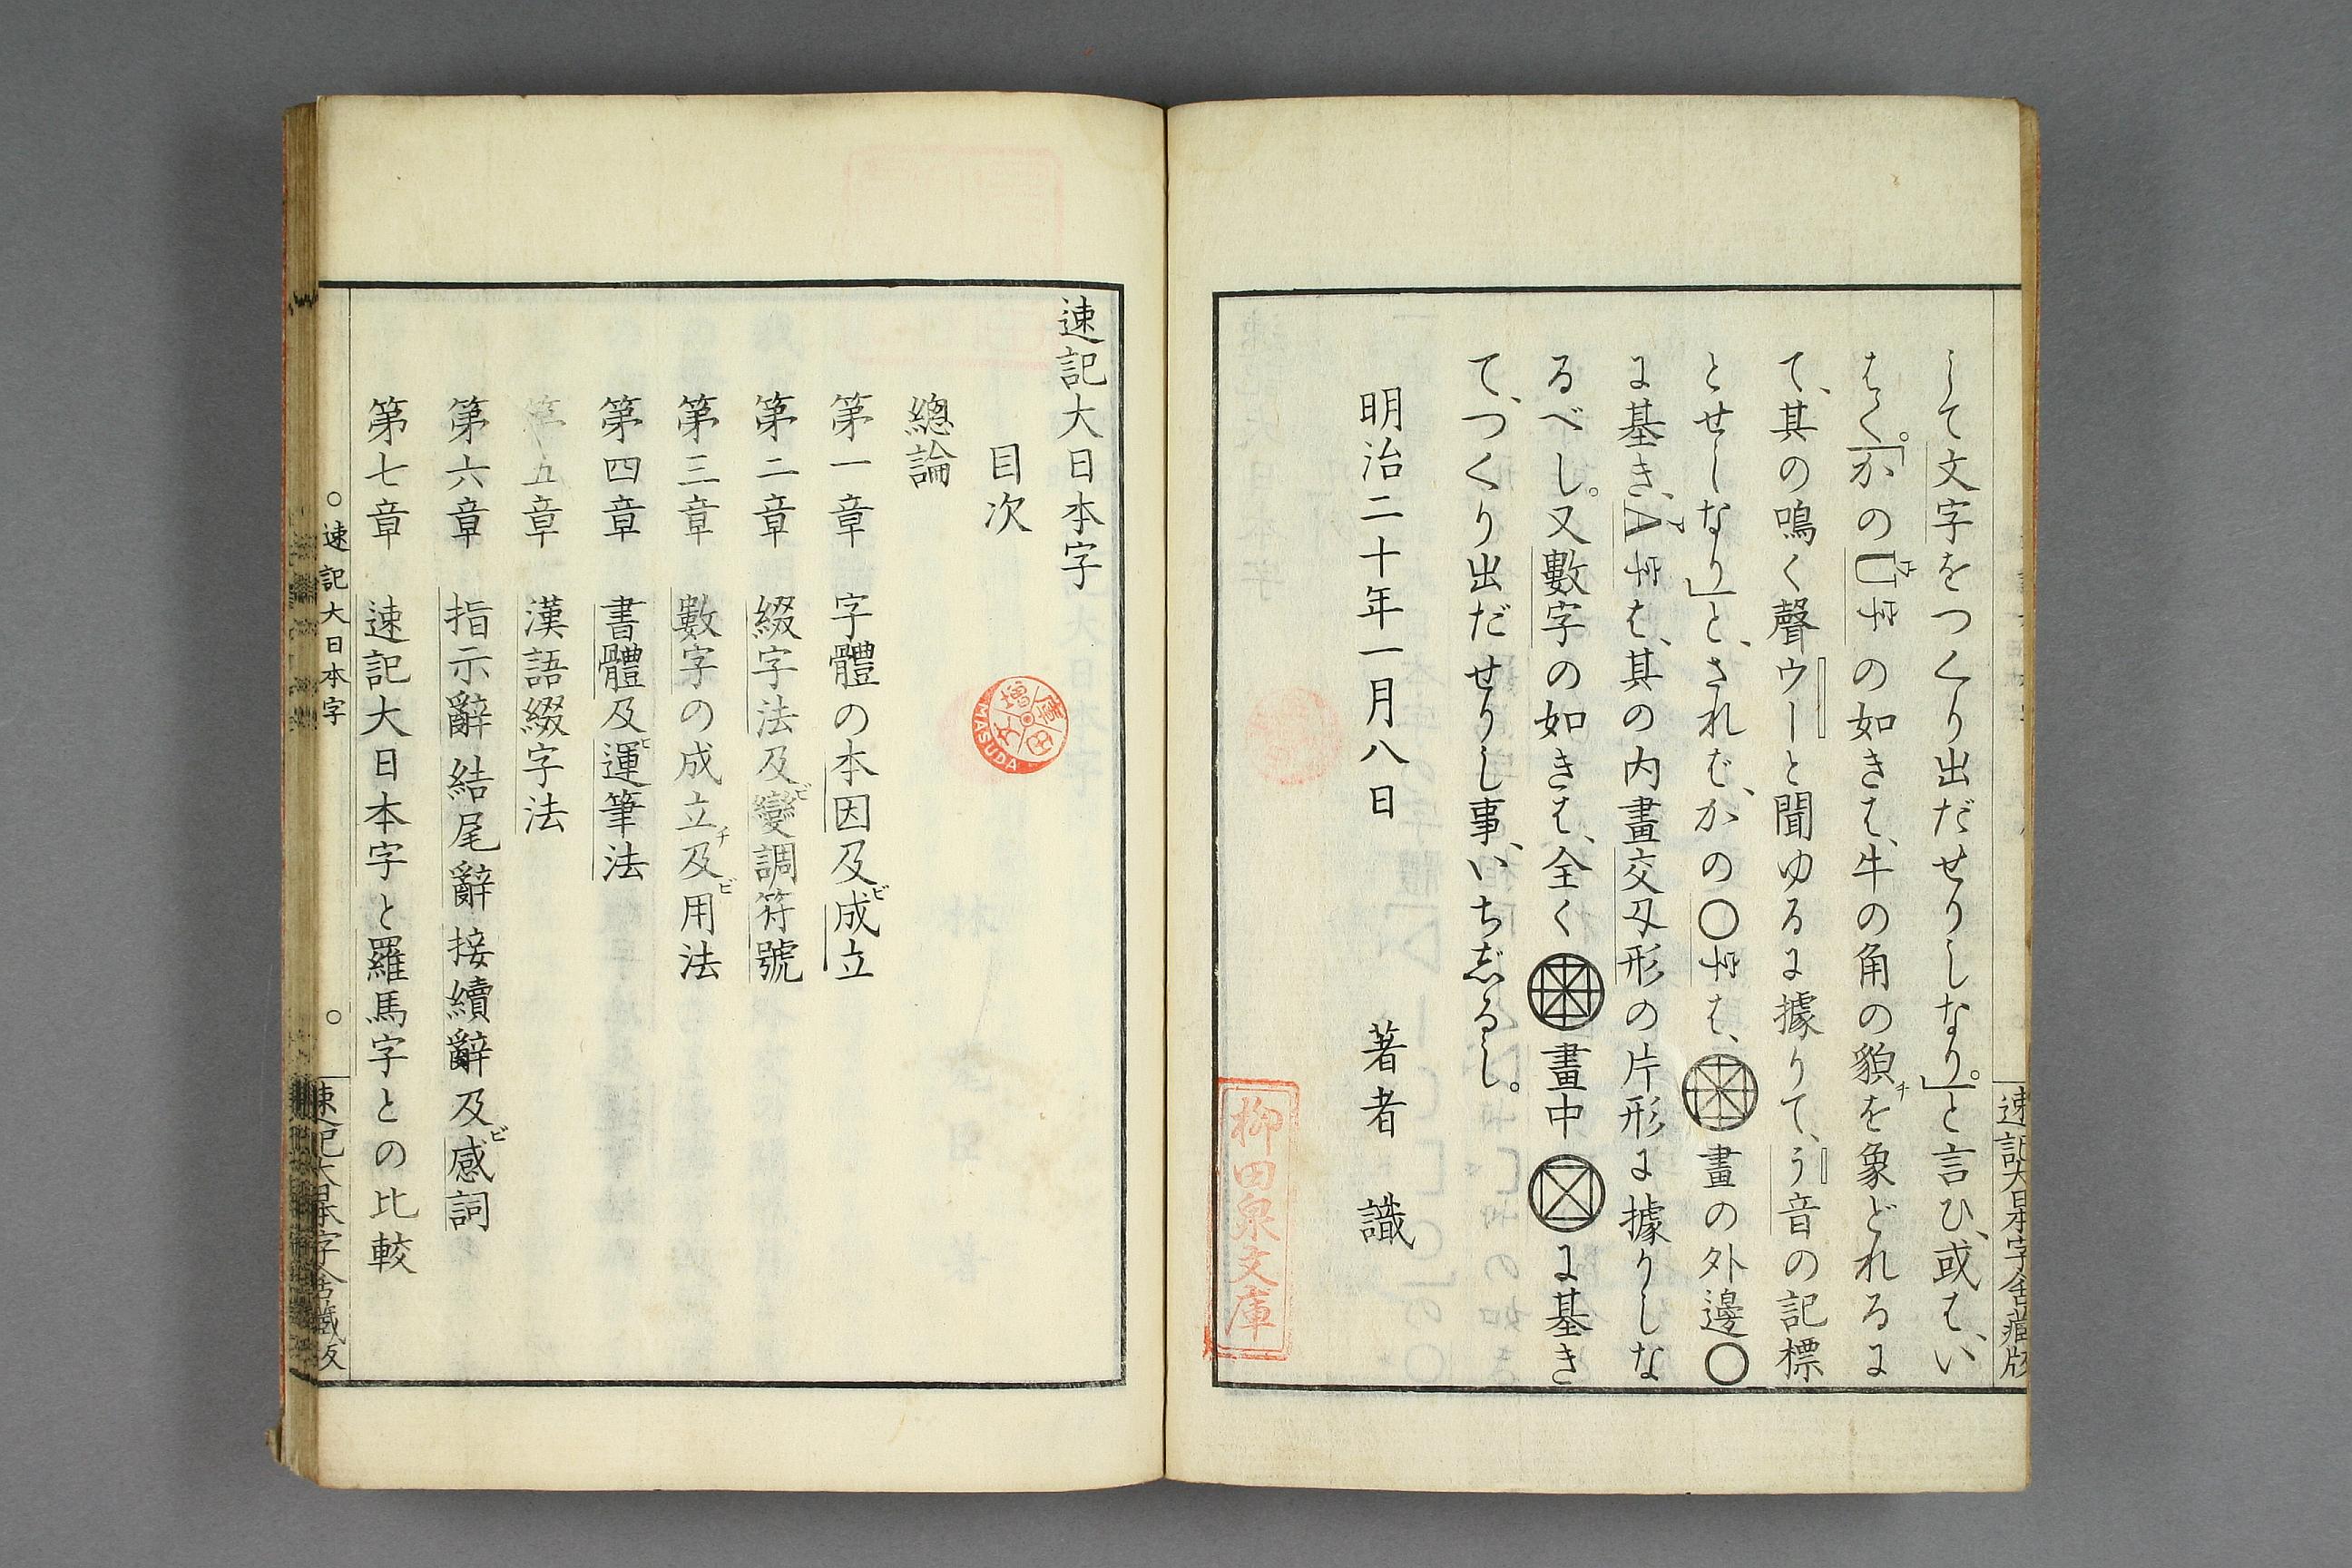 して文字をつくり出だせりしなり。」と言ひ、或は、い
はく。「かの
の如きは、牛の角の貌を象どれるに
て、其の鳴く聲ウーと聞ゆるに據りて、う音の記標
とせしなり」と、されば、かの〇
は、
畫の外邊〇
に基き、A
は、其の内畫交叉形の片形に據りしな
るべし。又數字の如きは、全く
畫中
に基き
て、つくり出だせりし事、いちじるし。
明治二十年一月八日 著者 識
速記大日本字舎蔵版
柳田泉文庫
速記大日本字
目次
總論
第一章 字體の本因及ビ成立
第二章 綴字法及ビ變調符號
第三章 數字の成立チ及ビ用法
第四章 書體及ビ運筆法
第五章 漢語綴字法
第六章 指示辭結尾辭接續辭及ビ感詞
第七章 速記大日本字と羅馬字との比較
〇速記大日本字 〇
速記大日本字舎蔵版
MASUDA